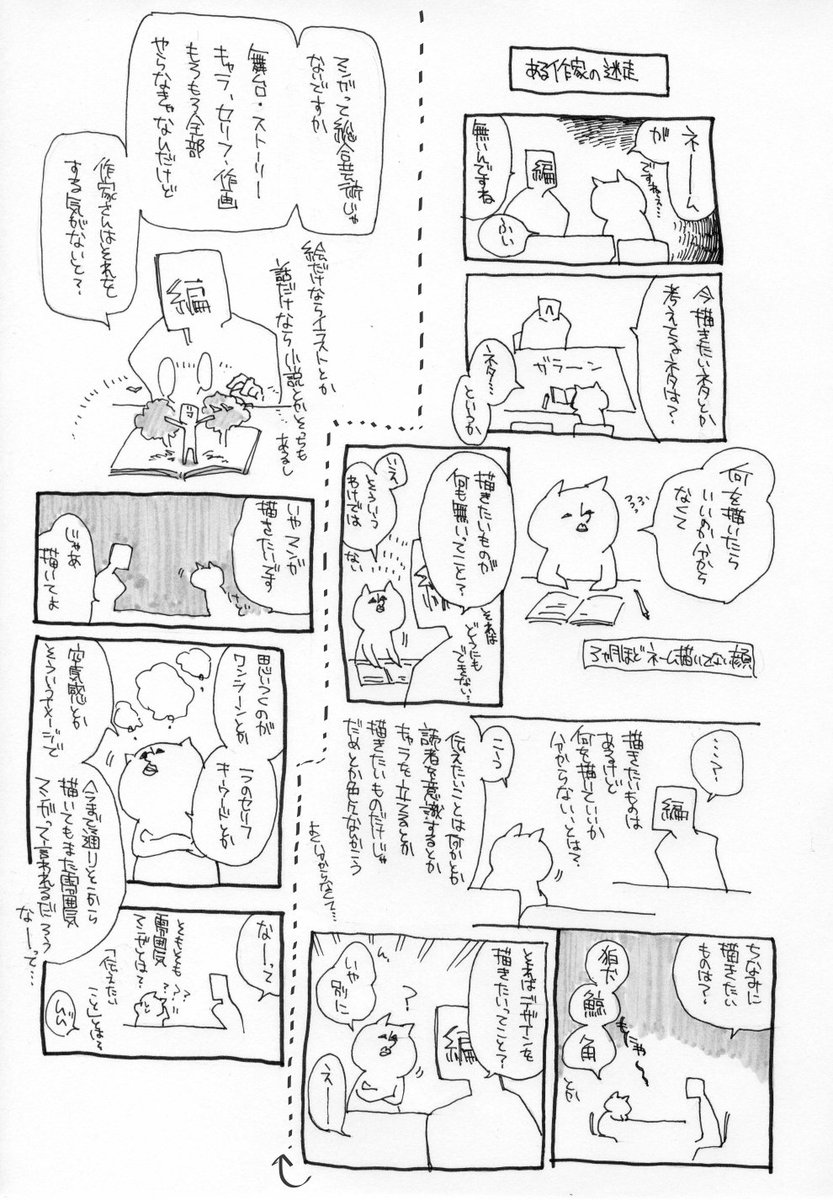 ある作家の迷走
ネーーム
が
ですねぇ…
無いんですね
編
ふい
今描きたいネタとか
考えてるネタは?
ガラーン
ネタ…
というか
何を描いたら
いいのか分から
なくて
ろろふふ
3ヶ月ほどネーム描いてない顔
描きたいものが
何も無いってこと?
それは
どうにも
できない…
いえ
そういう
わけでは
ない
…で?
編
描きたいものは
あるけど
何を描いていいか
分からないとは?
こう
伝えたいことは何かとか
読者を意識するとか
キャラを立てるとか
描きたいものだけじゃ
だめとか色々なかこう
よく分からなくて…
ちなみに
描きたい
ものは?
狼犬
鯨
角
とか
もにゃ〜
それはデザインを
描きたいってこと?
編
?
いや別に
えーー
マンガって総合芸術じゃ
ないですか
舞台・ストーリー
キャラ、セリフ・作画
もろもろ全部
やらなきゃなんだけど
作家さんはそれを
する気がないと?
編
絵だけならイラストとか
話だけなら小説とかそっちも
あるし
いやマンガ
描きたいです
けど
じゃあ
描いてよ
思いつくのが
ワンシーンとか
一つのセリフ
キーワードとか
空気感とか
そういうイメージで
今まで通りそこから
描いてもまた雰囲気
マンガって言われるだろう
なーって…
なーって
そもそも
雰囲気
マンガとは?
???
「伝えたい
こと」とは?
ムム